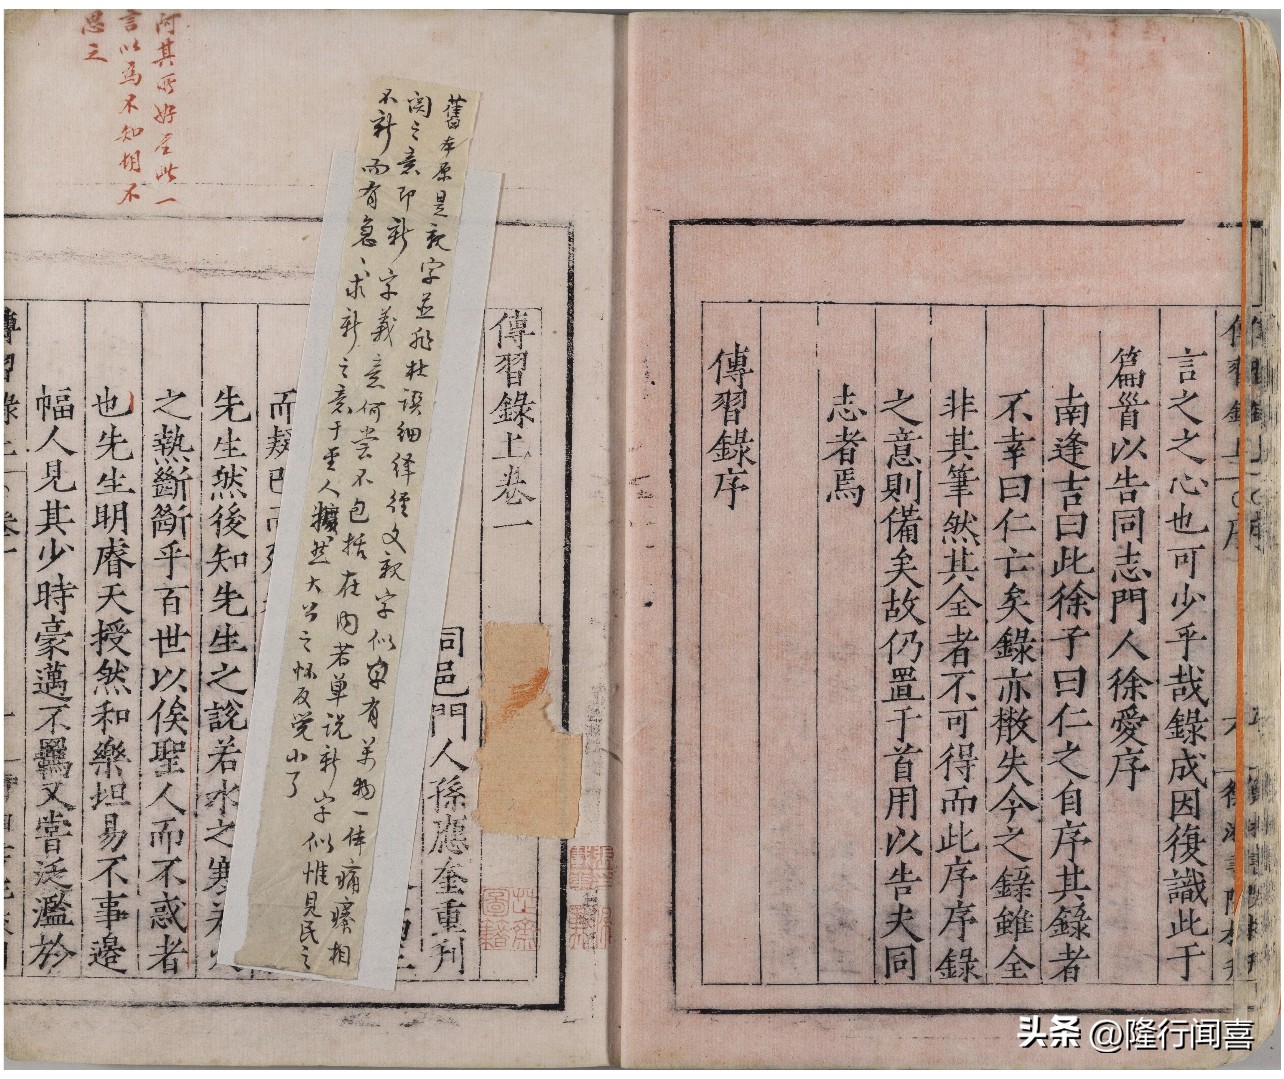 言之之心也可少乎哉錄成因復識此于
篇首以告同志門人徐愛序
南逢吉曰此徐子曰仁之自序其錄者
不幸曰仁亡矣錄亦散失今之錄雖全
非其筆然其全者不可得而此序序錄
之意則備矣故仍置于首用以告夫同
志者焉
傳習錄序
傳習錄上卷一
同邑門人孫應奎重刊
舊本原是親字並非杜譔細繹經文親字似字有萬物一体痛癢相
関之意即新字義意何尝不包括在內若单说新字似惟見民之
不新而有急、求新之意于聖人然大公之怀反觉小了
而疑
先生然後知先生之說若水之寒若火
之熱斷斷乎百世以俟聖人而不惑者
也先生明睿天授然和樂坦易不事邊
幅人見其少時豪邁不羈又嘗泛濫於
阿其所好全此一
言以為不知胡不
思之
头条 @隆行闻喜